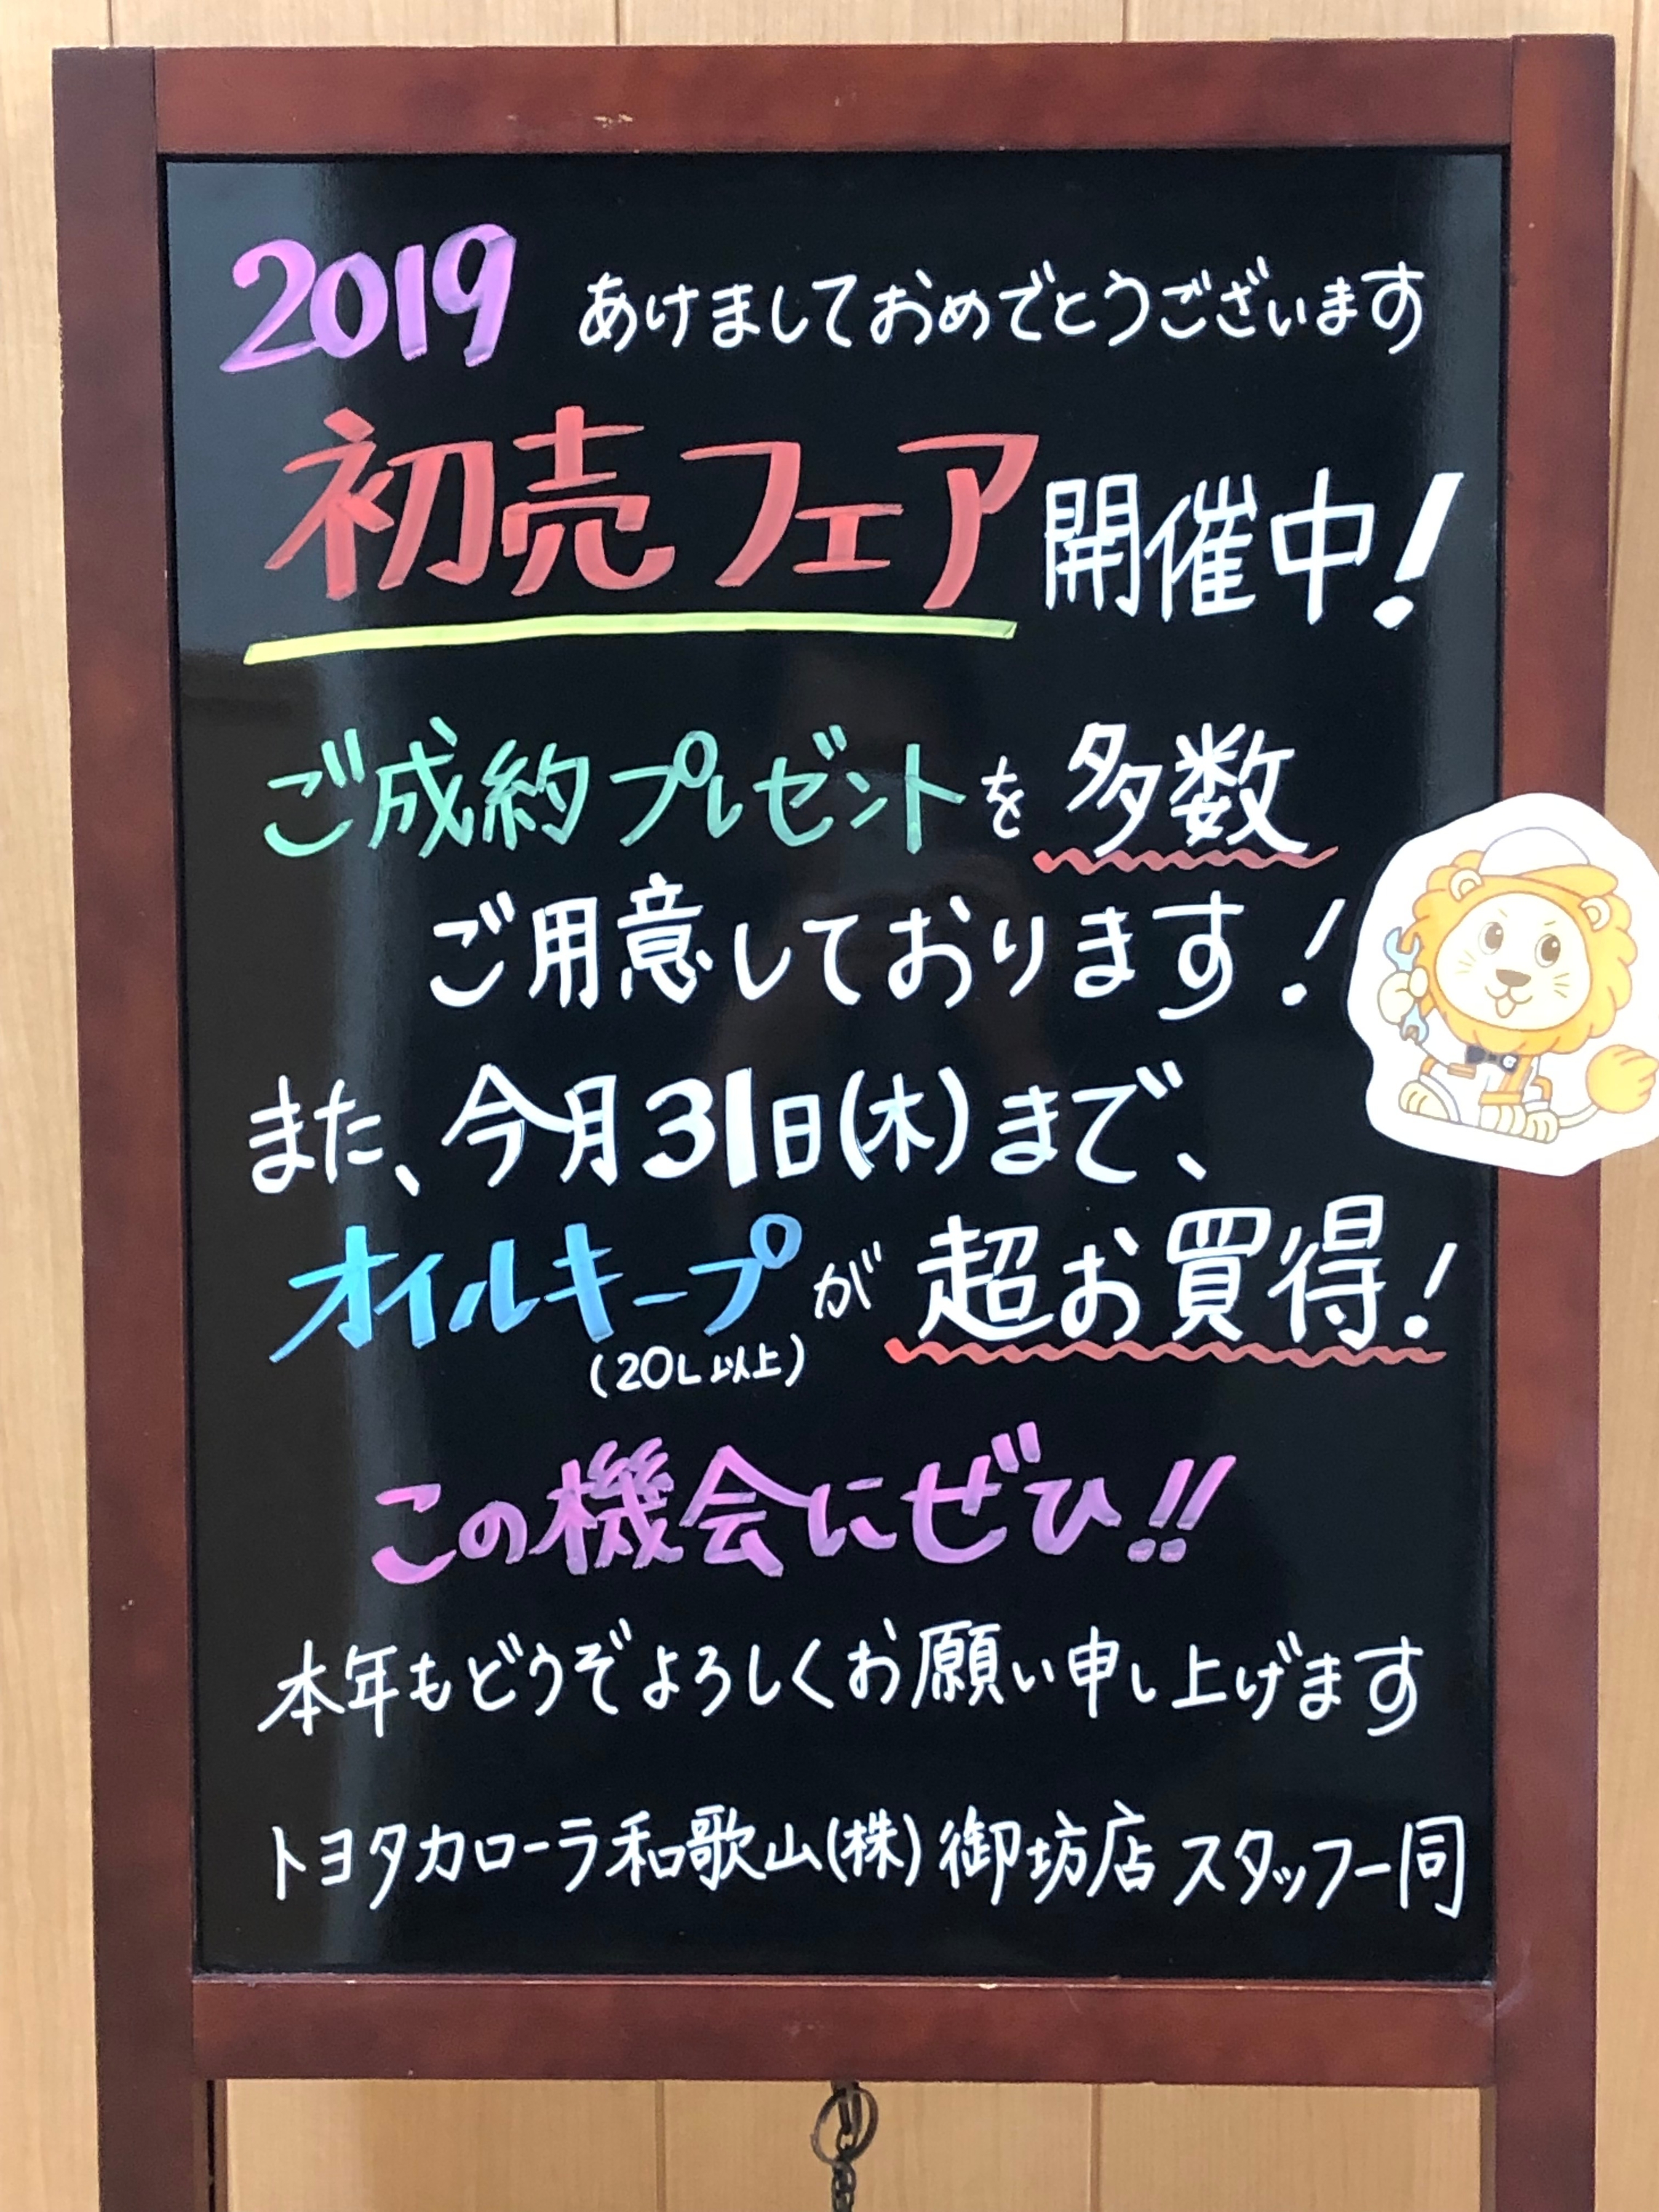 2019 あけましておめでとうございます
初売フェア開催中!
ご成約プレゼントを多数
ご用意しております!
また、今月31日(木)まで、
オイルキープが超お買得!
(20L以上)
この機会にぜひ!!
本年もどうぞよろしくお願い申し上げます
トヨタカローラ和歌山(株)御坊店スタッフ一同